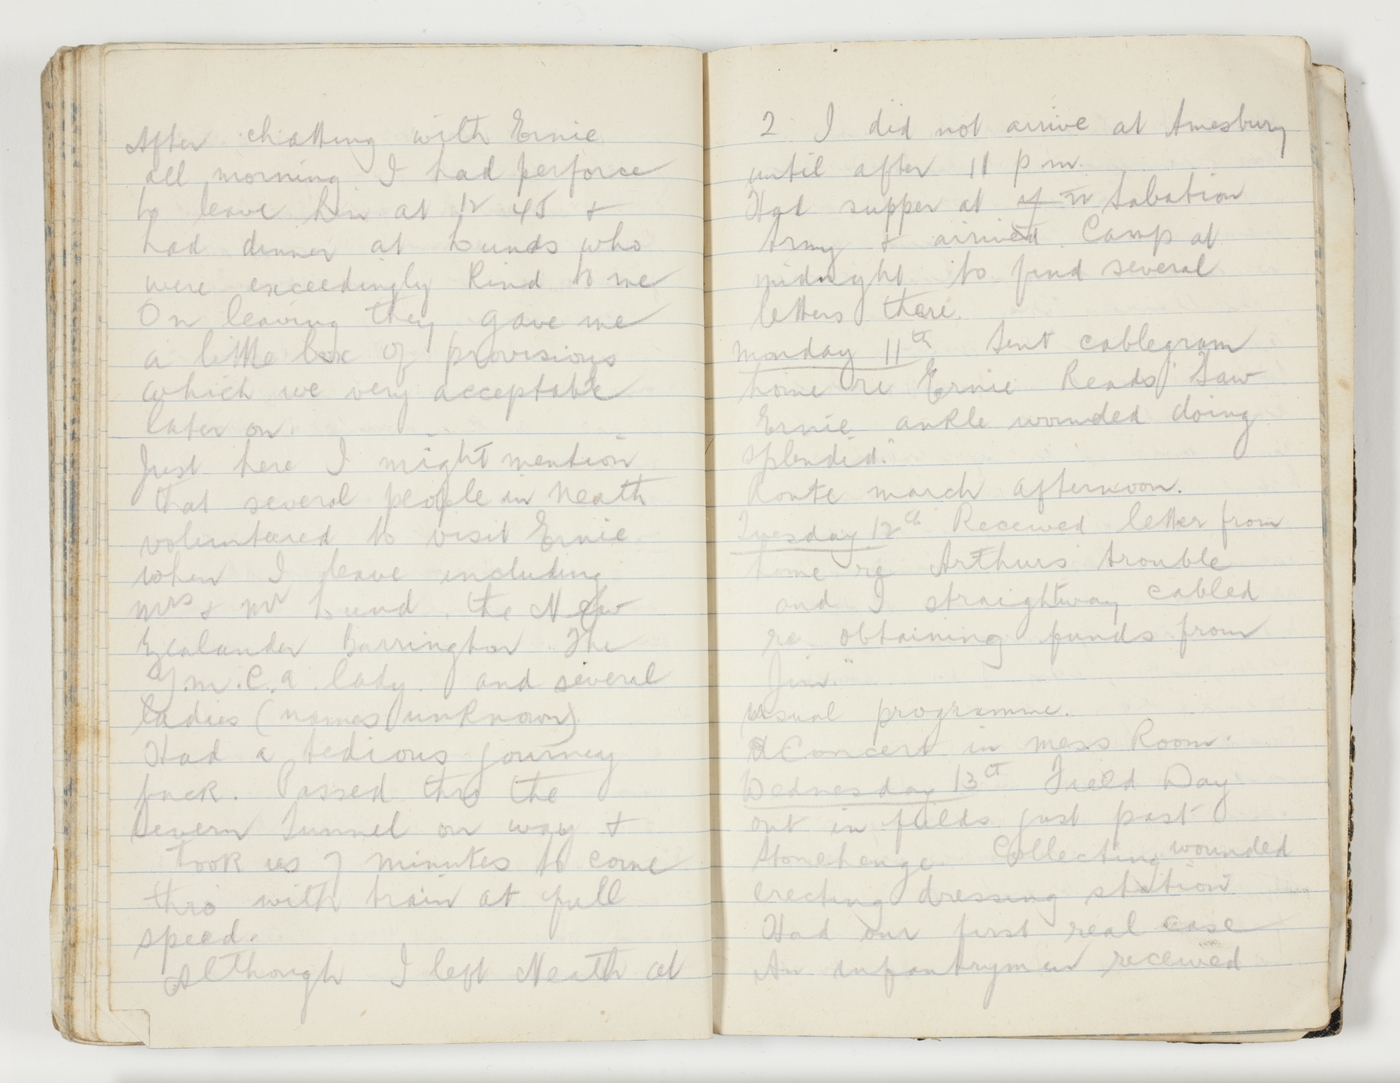 After chatting with Ernie
all morning I had perforce
to leave him at 12 45 &
had dinner at Lunds who
were exceedingly kind to me
On leaving they gave me
a little box of provisions
which we very acceptable
later on.
Just here I might mention
that several people in Neath
volunteered to visit Ernie
when I leave including
Mrs & Mr Lund. the New
Zealander Barrington The
Y.M.C.A. lady. and several
ladies (names unknown)
Had a tedious journey
back. Passed thro the
Severn Tunnel on way &
took us 7 minutes to come
thro with train at full
speed.
Although I left Neath at
2 I did not arrive at Amesbury
until after 11 p m.
Had supper at Salvation
Army & arrived Camp at
midnight to find several
letters there.
Monday 11th Sent cablegram
home re Ernie Reads "Saw
Ernie ankle wounded doing
splendid."
Route march afternoon.
Tuesday 12th Received letter from
home re Arthurs trouble
and I straightway cabled
re obtaining funds from
Jim"
usual programme.
Concert in Mess Room.
Wednesday 13th Field Day
out in fields just past
Stonehenge. Collecting wounded
erecting dressing station
Had our first real case
An infantryman received